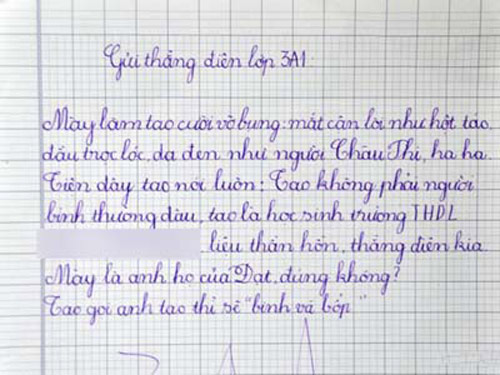 Gửi thằng điên lớp 3A1.
Mày làm tao cười vỡ bụng: mắt cận lòi như hột táo,
đầu trọc lóc, da đen như người Châu Thi, ha ha.
Tiện đây tao nói luôn: Tao không phải người
bình thường đâu, tao là học sinh trường THDL
, liệu thần hồn, thằng điên kia.
Mày là anh họ của Đạt, đúng không?
Tao gọi anh tao thì sẽ "binh và bốp"